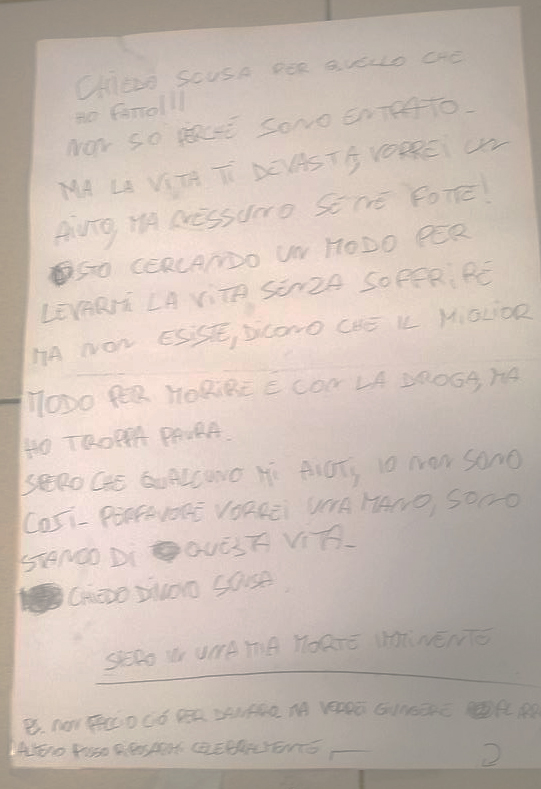 CHIEDO SCUSA PER QUELLO CHE
HO FATTO!!!
NON SO PERCHÉ SONO ENTRATO-
MA LA VITA TI DEVASTA, VORREI UN
AIUTO, MA NESSUNO SE NE FOTTE!
STO CERCANDO UN MODO PER
LEVARMI LA VITA SENZA SOFFRIRE
MA NON ESISTE, DICONO CHE IL MIGLIOR
MODO PER MORIRE È CON LA DROGA, MA
HO TROPPA PAURA.
SPERO CHE QUALCUNO MI AIUTI, IO NON SONO
COSÌ- PERFAVORE VORREI UNA MANO, SONO
STANCO DI QUESTA VITA-
CHIEDO DINUOVO SCUSA.
SPERO IN UNA MIA MORTE IMMINENTE
NON FACCIO CIÒ PER DANARO, MA VORREI GIUNGERE AL
ALMENO POSSO CELEBRALMENTE,